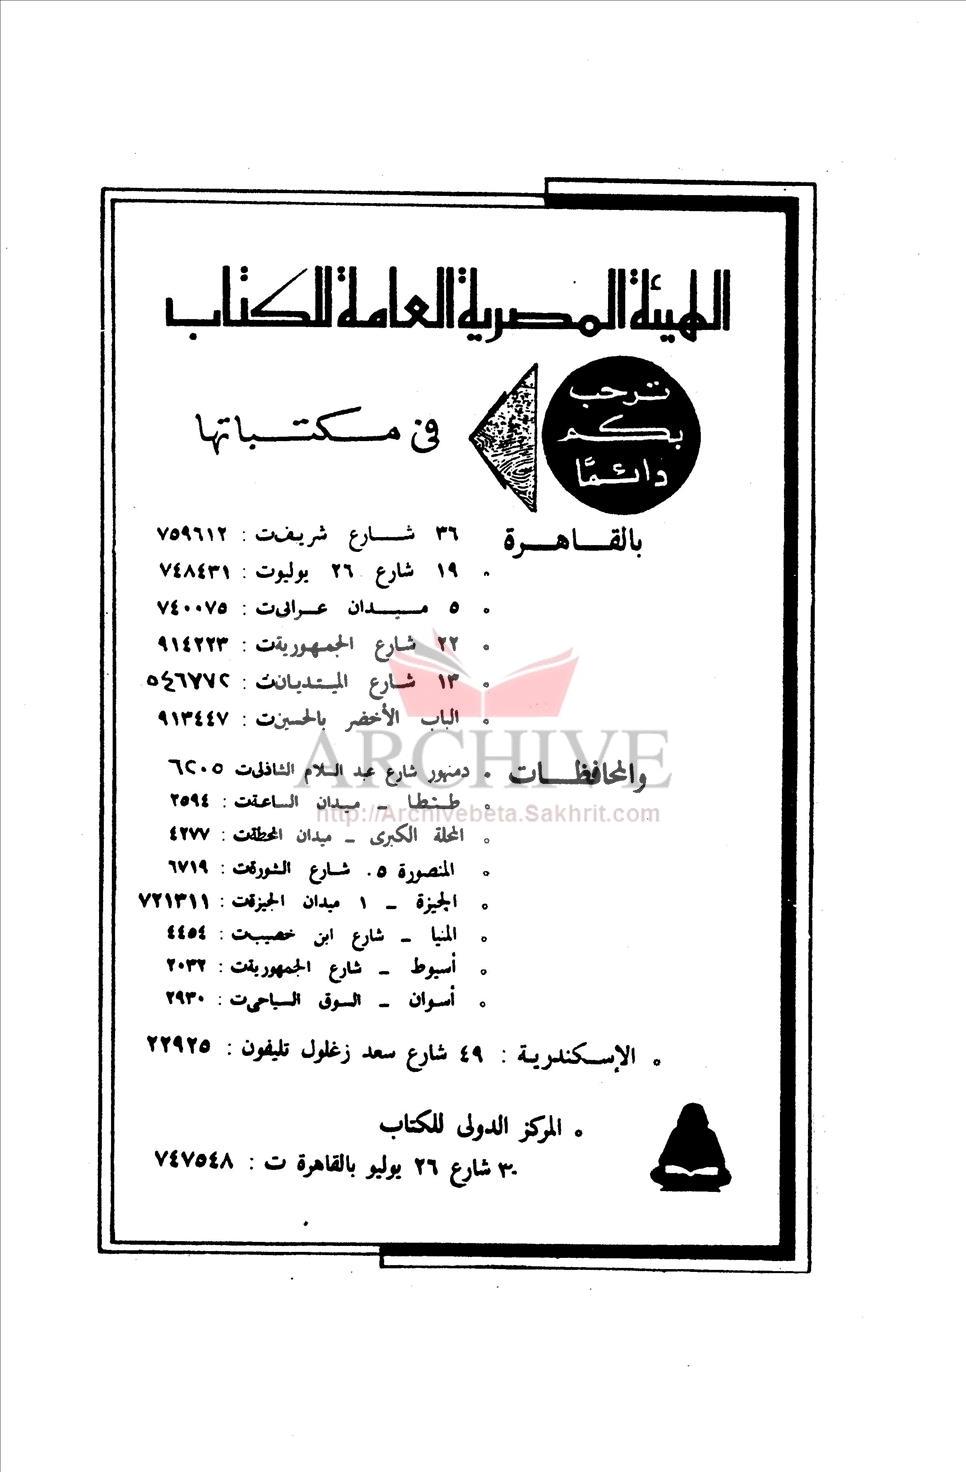 الهيئة المصرية العامة للكتاب
ترحب
بكم
دائمًا
فى مكتباتها
بالقاهرة
٣٦ شارع شريف ت : ٧٥٩٦١٢
١٩ شارع ٢٦ يوليو ت : ٧٤٨٤٣١
٥ ميدان عرابى ت : ٧٤٠٠٧٥
٢٢ شارع الجمهورية ت : ٩١٤٢٢٣
١٣ شارع المبتديان ت : ٥٤٦٧٧٢
الباب الأخضر بالحسين ت : ٩١٣٤٤٧
ARCHIVE
http://Archivebeta.Sakhrit.com
والمحافظات
دمنهور شارع عبد السلام الشاذلى ت ٦٢٠٥
طنطا - ميدان الساعة ت : ٢٥٩٤
المحلة الكبرى - ميدان المحطة ت : ٤٢٧٧
المنصورة ٥ شارع الثورة ت : ٦٧١٩
الجيزة - ١ ميدان الجيزة ت : ٧٢١٣١١
المنيا - شارع ابن خصيب ت : ٤٤٥٤
أسيوط - شارع الجمهورية ت : ٢٠٣٢
أسوان - السوق السياحى ت : ٢٩٣٠
الإسكندرية : ٤٩ شارع سعد زغلول تليفون : ٢٢٩٢٥
المركز الدولى للكتاب
٣٠ شارع ٢٦ يوليو بالقاهرة ت : ٧٤٧٥٤٨